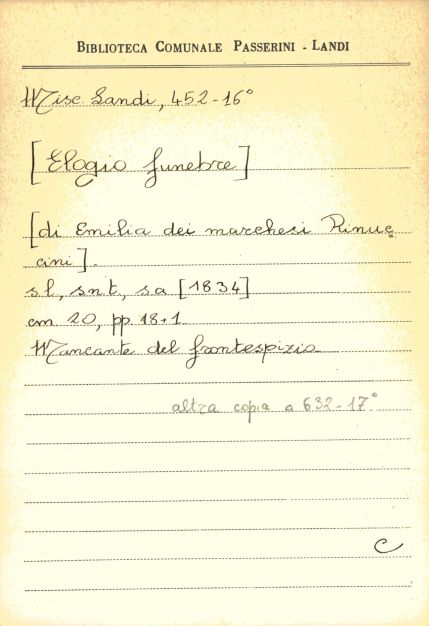 BIBLIOTECA COMUNALE PASSERINI - LANDI
Misc Landi, 452-16°
[Elogio funebre]
[di Emilia dei marchesi Rinuc=
cini].
sl, snt, sa [1834]
cm 20, pp. 18+1
Mancante del frontespizio
altra copia a 632-17°
C